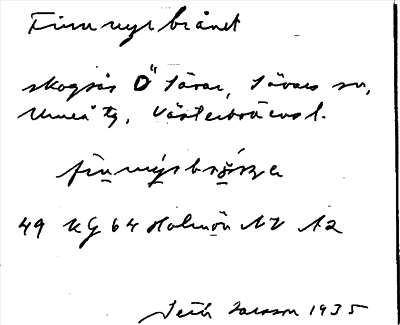 Finnmyrbränet
skogsås Ö Sävar, Sävars sn,
Umeå tg, Västerbottens l.
49 KG 64 Holmön NV 12
Seth Larsson 1935